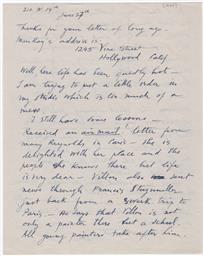 210 W. 14th
June 27th
Thanks for your letter of long ago.
Monkey's address is:
1245 Vine Street
Hollywood Calif
Well, here life has been quietly hot –
I am trying to put a little order in
my studio which is too much of a
mess.
I still have some lessons –
Received an airmail letter from
Mary Reynolds in Paris – she is
delighted with her place and the
people she knows there but life
is very dear – Villon also sent
news through Francis Steegmuller
just back from a 2 week trip to
Paris – He says that Villon is not
only a painter there but a school.
All young painters take after him.